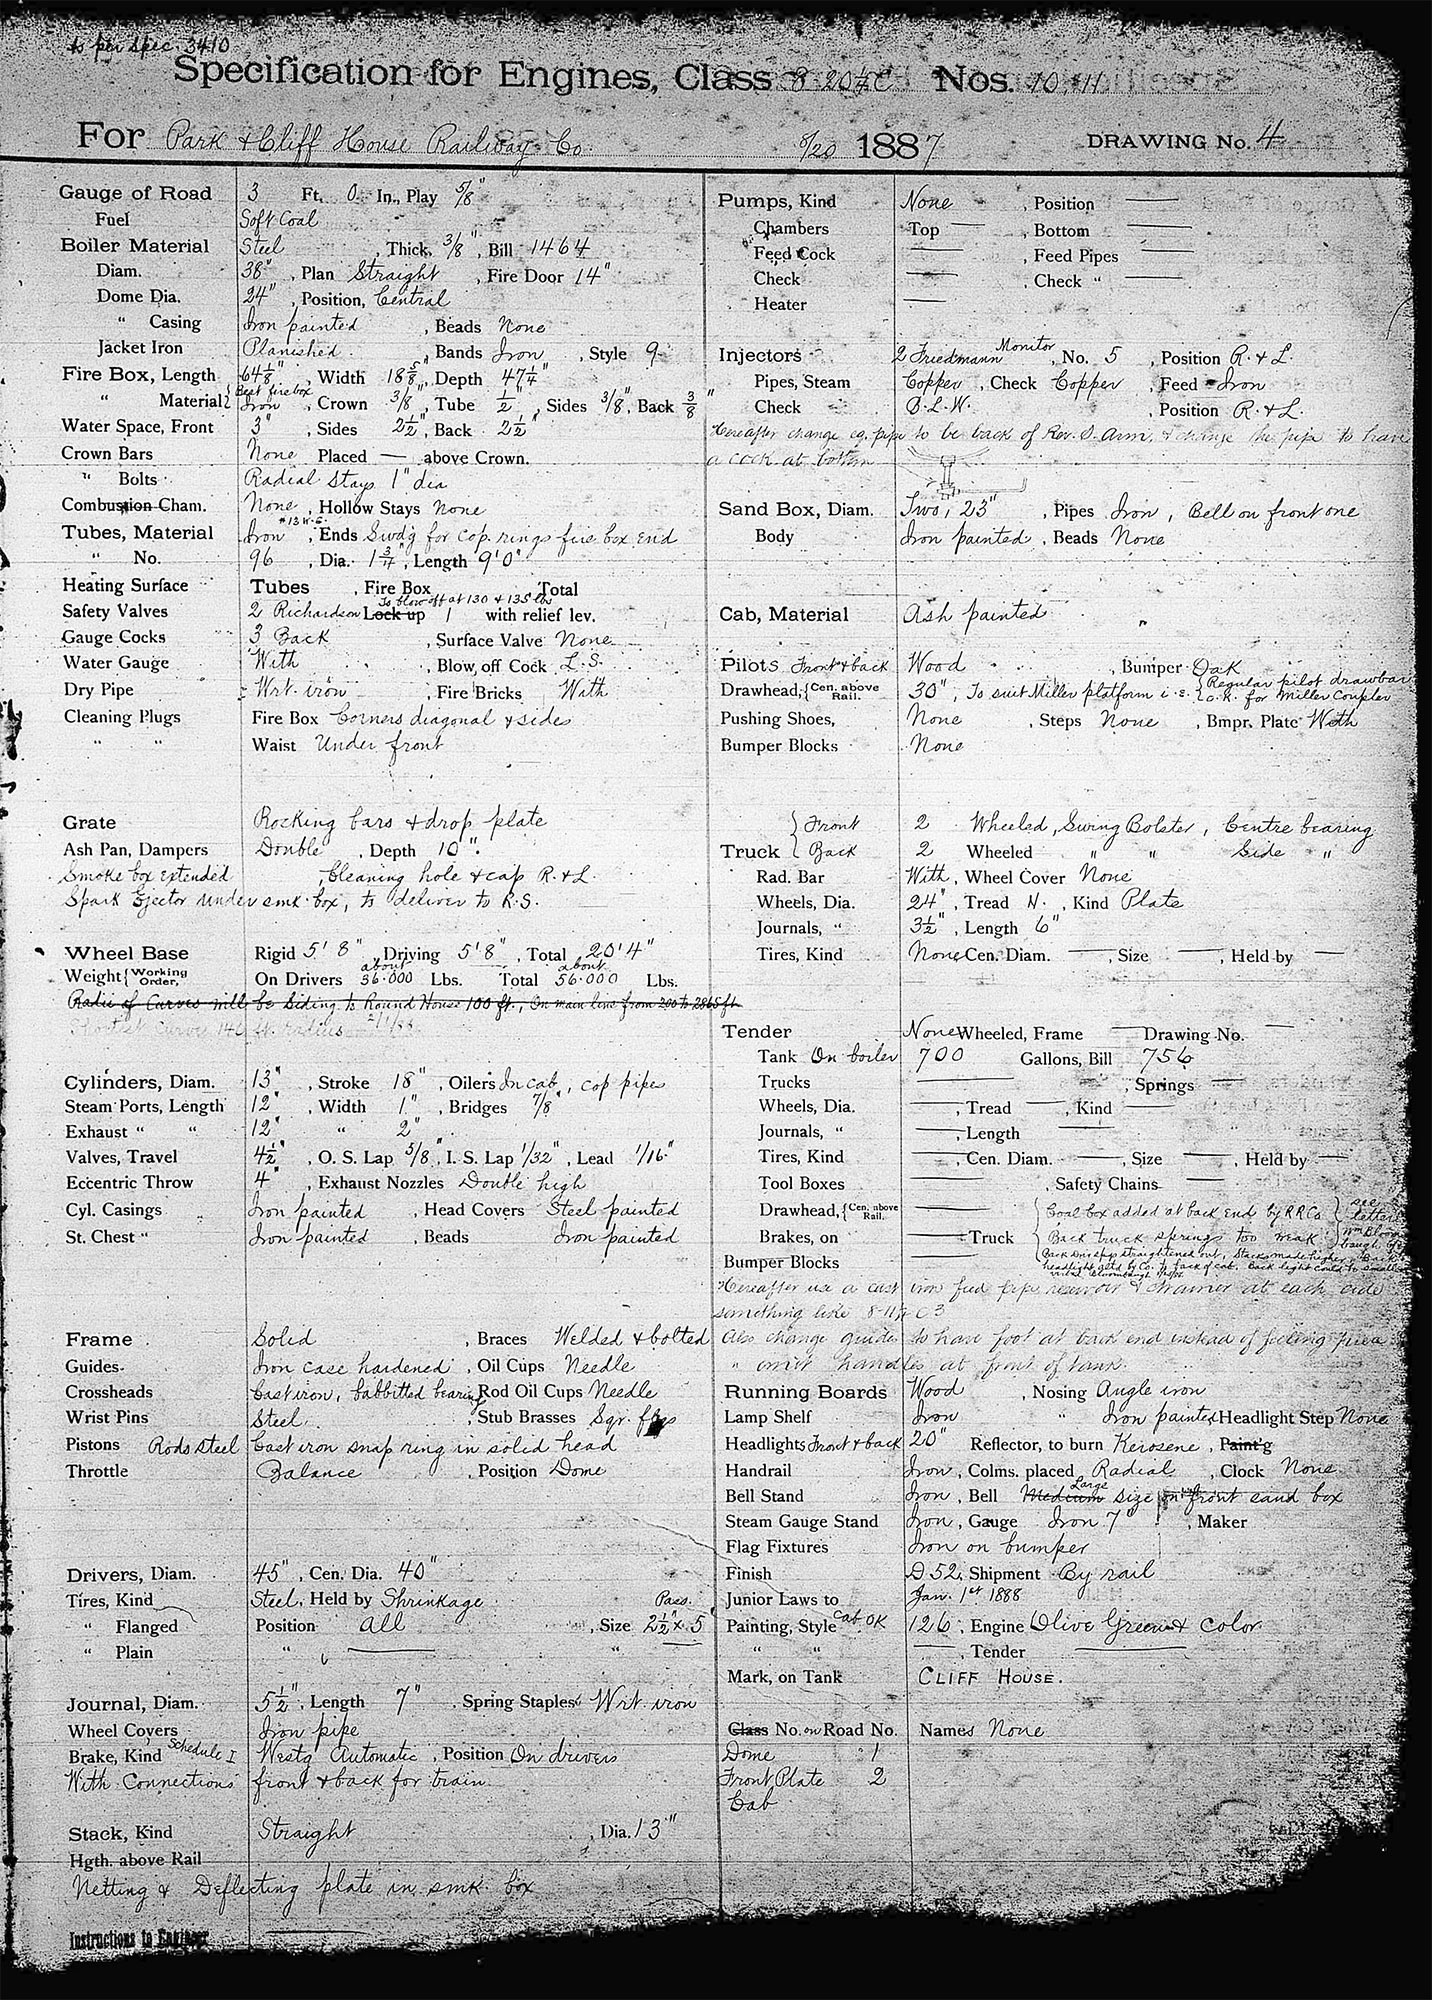 As per spec. 3410
Specification for Engines, Class 8-20¼C Nos. 10, 11
For Park & Cliff House Railway Co. 8/20 1887 DRAWING No. 4
Gauge of Road 3 Ft. 0 In., Play 5/8"
Fuel Soft Coal
Boiler Material Steel, Thick. 3/8", Bill 1464
Diam. 38", Plan Straight, Fire Door 14"
Dome Dia. 24", Position, Central
" Casing Iron painted, Beads None
Jacket Iron Planished, Bands Iron, Style 9
Fire Box, Length 64⅛", Width 18⅝", Depth 47¼"
" Material { Best fire box Iron, Crown 3/8", Tube ½", Sides 3/8", Back 3/8"
Water Space, Front 3", Sides 2½", Back 2½"
Crown Bars None Placed — above Crown.
" Bolts Radial Stays 1" dia
Combustion Cham. None, Hollow Stays None
Tubes, Material Iron #13 W.G., Ends Swdg for cop. rings fire box end
" No. 96, Dia. 1¾", Length 9'0"
Heating Surface Tubes, Fire Box Total
Safety Valves 2 Richardson To blow off at 130 & 135 lbs Lock up 1 with relief lev.
Gauge Cocks 3 Back, Surface Valve None
Water Gauge With, Blow off Cock L.S.
Dry Pipe Wrt. iron, Fire Bricks With
Cleaning Plugs Fire Box Corners diagonal & sides
" " Waist Under front
Grate Rocking bars & drop plate
Ash Pan, Dampers Double, Depth 10".
Smoke box extended, Cleaning hole & cap R. & L.
Spark Ejector under smk. box, to deliver to R.S.
Wheel Base Rigid 5' 8", Driving 5' 8", Total 20' 4"
Weight { Working Order, On Drivers about 36.000 Lbs. Total about 56.000 Lbs.
Radii of Curves will be Siding to Round House 100 ft., On main line from 200 to 2865 ft
Shortest curve 146 ft. radius 2/1/88
Cylinders, Diam. 13", Stroke 18", Oilers In cab, cop pipes
Steam Ports, Length 12", Width 1", Bridges 7/8"
Exhaust " " 12" " 2"
Valves, Travel 4½", O. S. Lap 5/8", I. S. Lap 1/32", Lead 1/16"
Eccentric Throw 4", Exhaust Nozzles Double high
Cyl. Casings Iron painted, Head Covers Steel painted
St. Chest " Iron painted, Beads Iron painted
Frame Solid, Braces Welded & bolted
Guides Iron case hardened, Oil Cups Needle
Crossheads Cast iron, babbitted bearing, Rod Oil Cups Needle
Wrist Pins Steel, Stub Brasses Sqr.
Pistons Rods steel Cast iron snap ring in solid head
Throttle Balance, Position Dome
Drivers, Diam. 45", Cen. Dia. 40"
Tires, Kind Steel, Held by Shrinkage Pass.
" Flanged Position all, Size 2½" x 5"
" Plain " — "
Journal, Diam. 5½", Length 7", Spring Staples Wrt. iron
Wheel Covers Iron pipe
Brake, Kind Schedule I Westg Automatic, Position On drivers
With Connections front & back for train
Stack, Kind Straight, Dia. 13"
Hgth. above Rail
Netting & Deflecting plate in smk. box
Instructions to Engineer
Pumps, Kind None, Position —
Chambers Top —, Bottom —
Feed Cock —, Feed Pipes —
Check —, Check " —
Heater —
Injectors 2 Friedmann Monitor, No. 5, Position R. & L.
Pipes, Steam Copper, Check Copper, Feed Iron
Check B. L. W., Position R. & L.
Hereafter change eq. pipe to be back of Rev. S. Arm, & change the pipe to have
a cock at bottom
Sand Box, Diam. Two, 23", Pipes Iron, Bell on front one
Body Iron painted, Beads None
Cab, Material Ash painted
Pilots Front & back Wood, Bumper Oak
Drawhead, { Cen. above Rail. 30", To suit Miller platform i.e. { Regular pilot drawbar O.K. for Miller Coupler
Pushing Shoes, None, Steps None, Bmpr. Plate With
Bumper Blocks None
Truck { Front 2 Wheeled, Swing Bolster, Centre bearing
Back 2 Wheeled " " Side "
Rad. Bar With, Wheel Cover None
Wheels, Dia. 24", Tread N., Kind Plate
Journals, " 3½", Length 6"
Tires, Kind None Cen. Diam. —, Size —, Held by —
Tender None Wheeled, Frame — Drawing No. —
Tank On boiler 700 Gallons, Bill 756
Trucks —, Springs —
Wheels, Dia. —, Tread —, Kind —
Journals, " —, Length —
Tires, Kind —, Cen. Diam. —, Size —, Held by —
Tool Boxes —, Safety Chains —
Drawhead, { Cen. above Rail. — { Coal box added at back end by RR Co } see letter
Brakes, on — Truck Back truck springs too weak
Bumper Blocks — Back Drv spgs straightened out, Stacks made higher, Back
headlight altd by Co. to back of cab. Back light could be smaller
Hereafter use a cast iron feed pipe reservoir & strainer at each side
something like 8-11¼ C 3
Also change guides to have foot at back end instead of
" omit handles at front of tank.
Running Boards Wood, Nosing Angle iron
Lamp Shelf Iron " Iron painted Headlight Step None
Headlights Front & back 20" Reflector, to burn Kerosene, Paint'g
Handrail Iron, Colms. placed Radial, Clock None
Bell Stand Iron, Bell Medium Large size on front sand box
Steam Gauge Stand Iron, Gauge Iron 7", Maker
Flag Fixtures Iron on bumper
Finish D 52, Shipment By rail
Junior Laws to Jan. 1st 1888
Painting, Style Cab OK 126, Engine Olive Green & Color
" " —, Tender —
Mark, on Tank CLIFF HOUSE.
Class No. on Road No. Names None
Dome 1
Front Plate 2
Cab